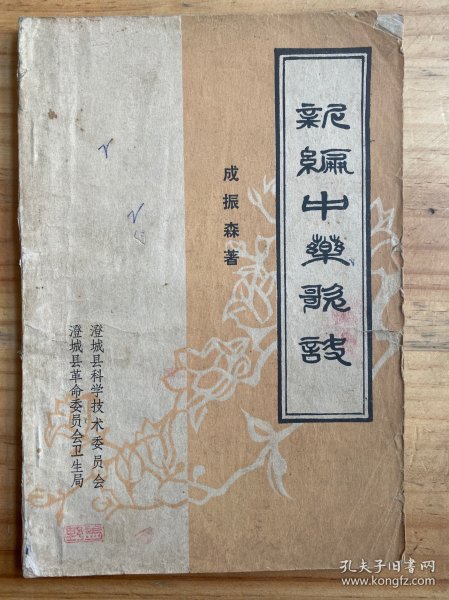 新編中藥歌訣
成振森著
澄城县科学技术委员会
澄城县革命委员会卫生局
孔夫子旧书网
www.kongfz.com